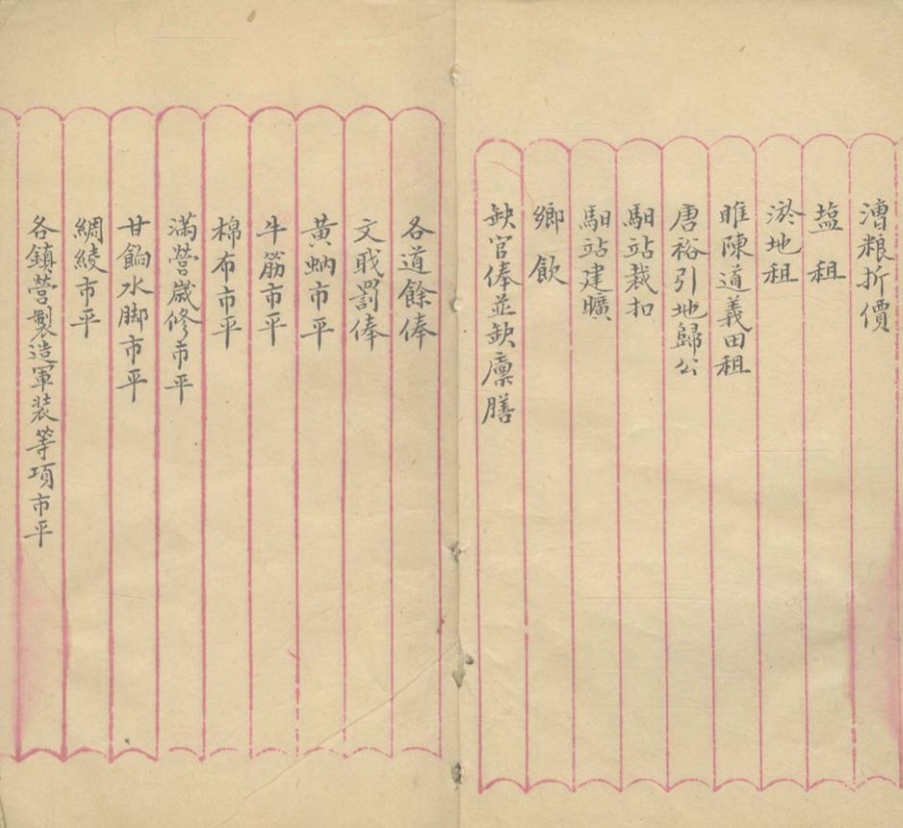 漕粮折價
塩租
淤地租
睢陳道義田租
唐裕引地歸公
馹站裁扣
馹站建曠
鄉飲
缺官俸並缺廩膳
各道餘俸
文職罰俸
黄蚋市平
牛筋市平
棉布市平
滿營歲修市平
甘餉水脚市平
綢綾市平
各鎮營製造軍装等項市平